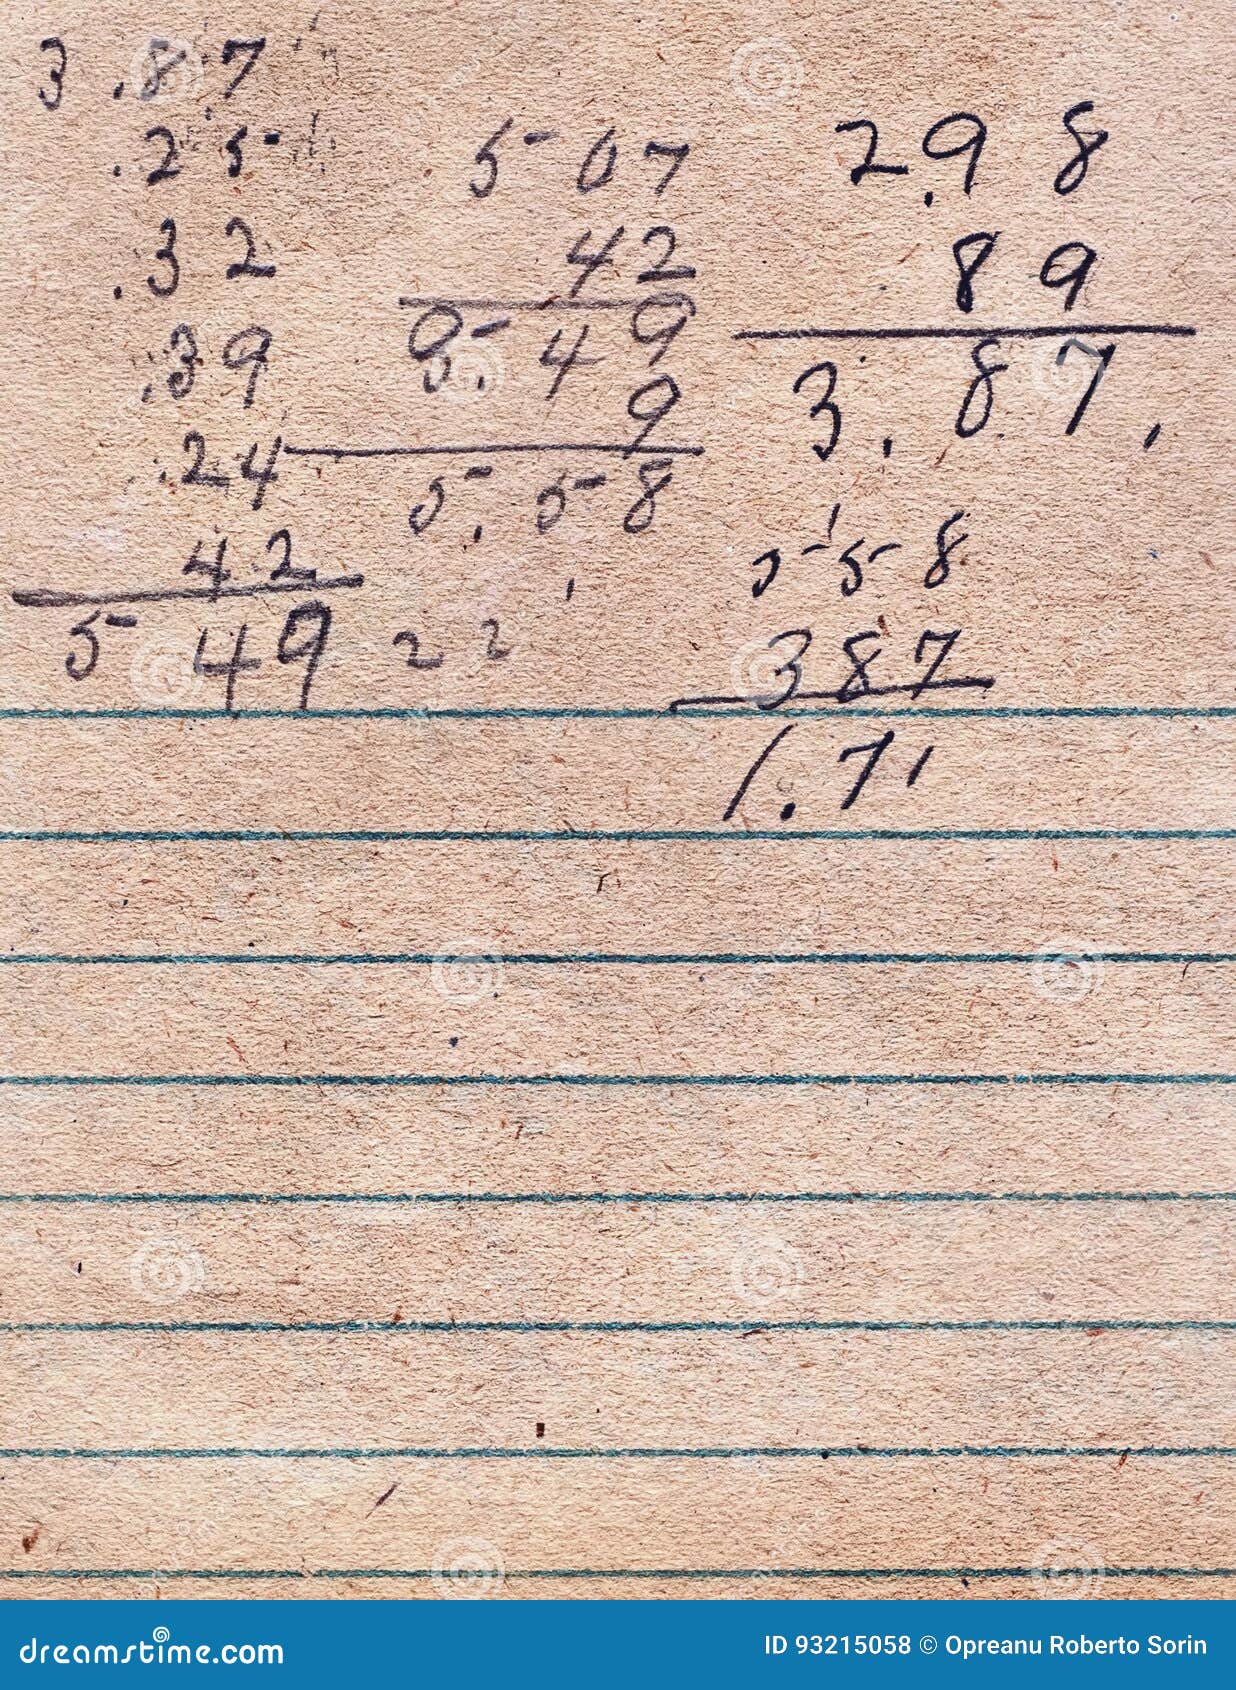 3 .87
.25
.32
.39
.24
42
5 49 22
5 07
42
5.49
9
5.58
2.98
89
3.87.
558
387
1.71
dreamstime.com
ID 93215058 © Opreanu Roberto Sorin